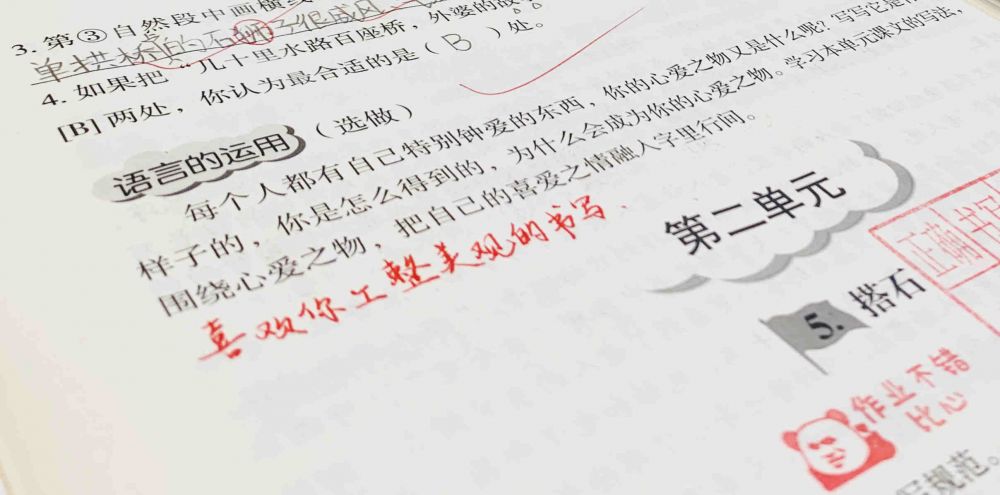 3. 第③自然段中画横线
单拱桥的石狮子很威风
4. 如果把“几十里水路百座桥，外婆的故
[B]两处，你认为最合适的是（ B ）处。
语言的运用（选做）
每个人都有自己特别钟爱的东西，你的心爱之物又是什么呢？写写它是什
样子的，你是怎么得到的，为什么会成为你的心爱之物。学习本单元课文的写法，
围绕心爱之物，把自己的喜爱之情融入字里行间。
喜欢你工整美观的书写.
第二单元
正确 书写
5. 搭石
作业不错
比心
写规范。